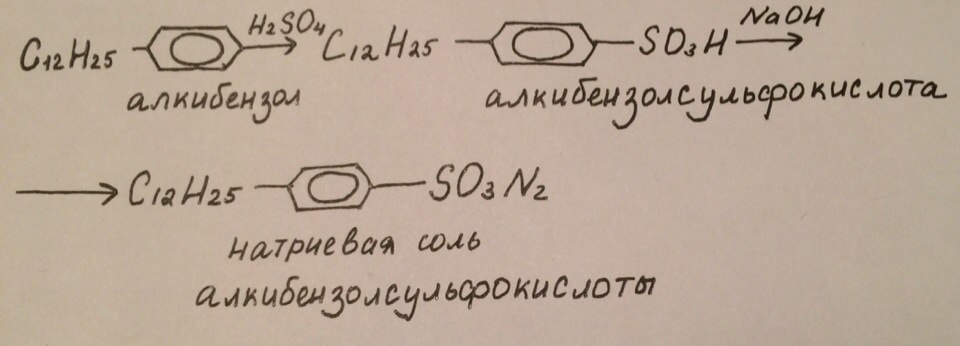 C12H25 H2SO4 C12H25 SO3H NaOH
алкибензол алкибензолсульфокислота
C12H25 SO3N2
натриевая соль
алкибензолсульфокислоты